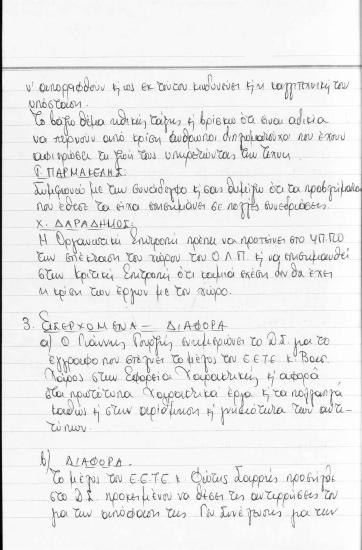 ν' απορριφθούν ή ως εκ τούτου κινδυνεύει ή η καλλιτεχνική του
υπόσταση.
Το βάζω θέμα ηθικής τάξης ή βρίσκω ότι είναι αδικία
να περνούν από κρίση άνθρωποι διπλωματούχοι που έχουν
αφιερώσει τη ζωή τους υπηρετώντας την τέχνη.
Γ. ΠΑΡΜΑΚΕΛΗΣ:
Συμφωνώ με την συνάδελφο ή σας θυμίζω ότι τα προβλήματα
που έθεσε τα είχα επισημάνει σε πολλές συνεδριάσεις.
Χ. ΔΑΡΑΔΗΜΟΣ:
Η Οργανωτική Επιτροπή πρέπει να προτείνει στο ΥΠ.ΠΟ
την επέκταση του χώρου του Ο.Λ.Π. ή να επισημανθεί
στην Κριτική Επιτροπή ότι καμιά σχέση δεν θα έχει
η κρίση των έργων με τον χώρο.
3. ΕΙΣΕΡΧΟΜΕΝΑ - ΔΙΑΦΟΡΑ
α) Ο Γιάννης ενημερώνει το Δ.Σ. για το
έγγραφο που στέλνει το μέλος του Ε.Ε.Τ.Ε κ. Βασ.
Χάρος στην Εφορεία Χαρακτικής ή αφορά
στα πρωτότυπα Χαρακτικά έργα ή τα πολλαπλά
καθώς ή στην αρίθμηση ή γνησιότητα των αντι-
τύπων.
β) ΔΙΑΦΟΡΑ.
Το μέλος του Ε.Ε.Τ.Ε κ. Φώτης Σαρρής προσήλθε
στο Δ.Σ. προκειμένου να θέσει τις αντιρρήσεις του
για την απόφαση της Γεν. Συνέλευσης για την